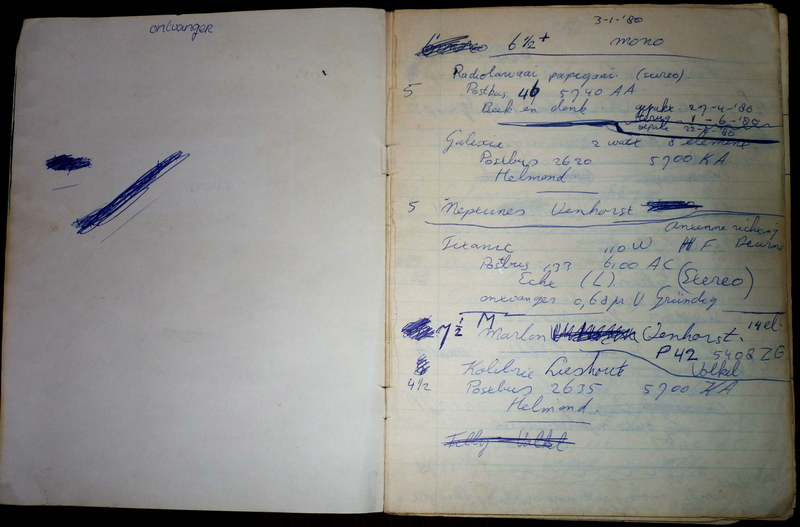 ontvanger
3-1-'80
6 1/2 + mono
Radiolawaai papegaai (stereo)
5 Postbus 46 5740 AA
Beek en donk gepakt 27-4-'80
terug 1-6-'80
gepakt 22-6-'80
Galaxie 2 watt 8 element
Postbus 2620 5700 KA
Helmond
5 Neptunes Venhorst
Antenne richting
Titanic 110 W H.F. Deurne
Postbus 133 6100 AC
Echt (L) (Stereo)
ontvanger 0,68 µ V Gründig
7 1/2 Marlon Venhorst. 14 el.
P 42 5408 ZG
Kolibrie Lieshout Volkel
4 1/2 Postbus 2635 5700 KA
Helmond.
Volkel